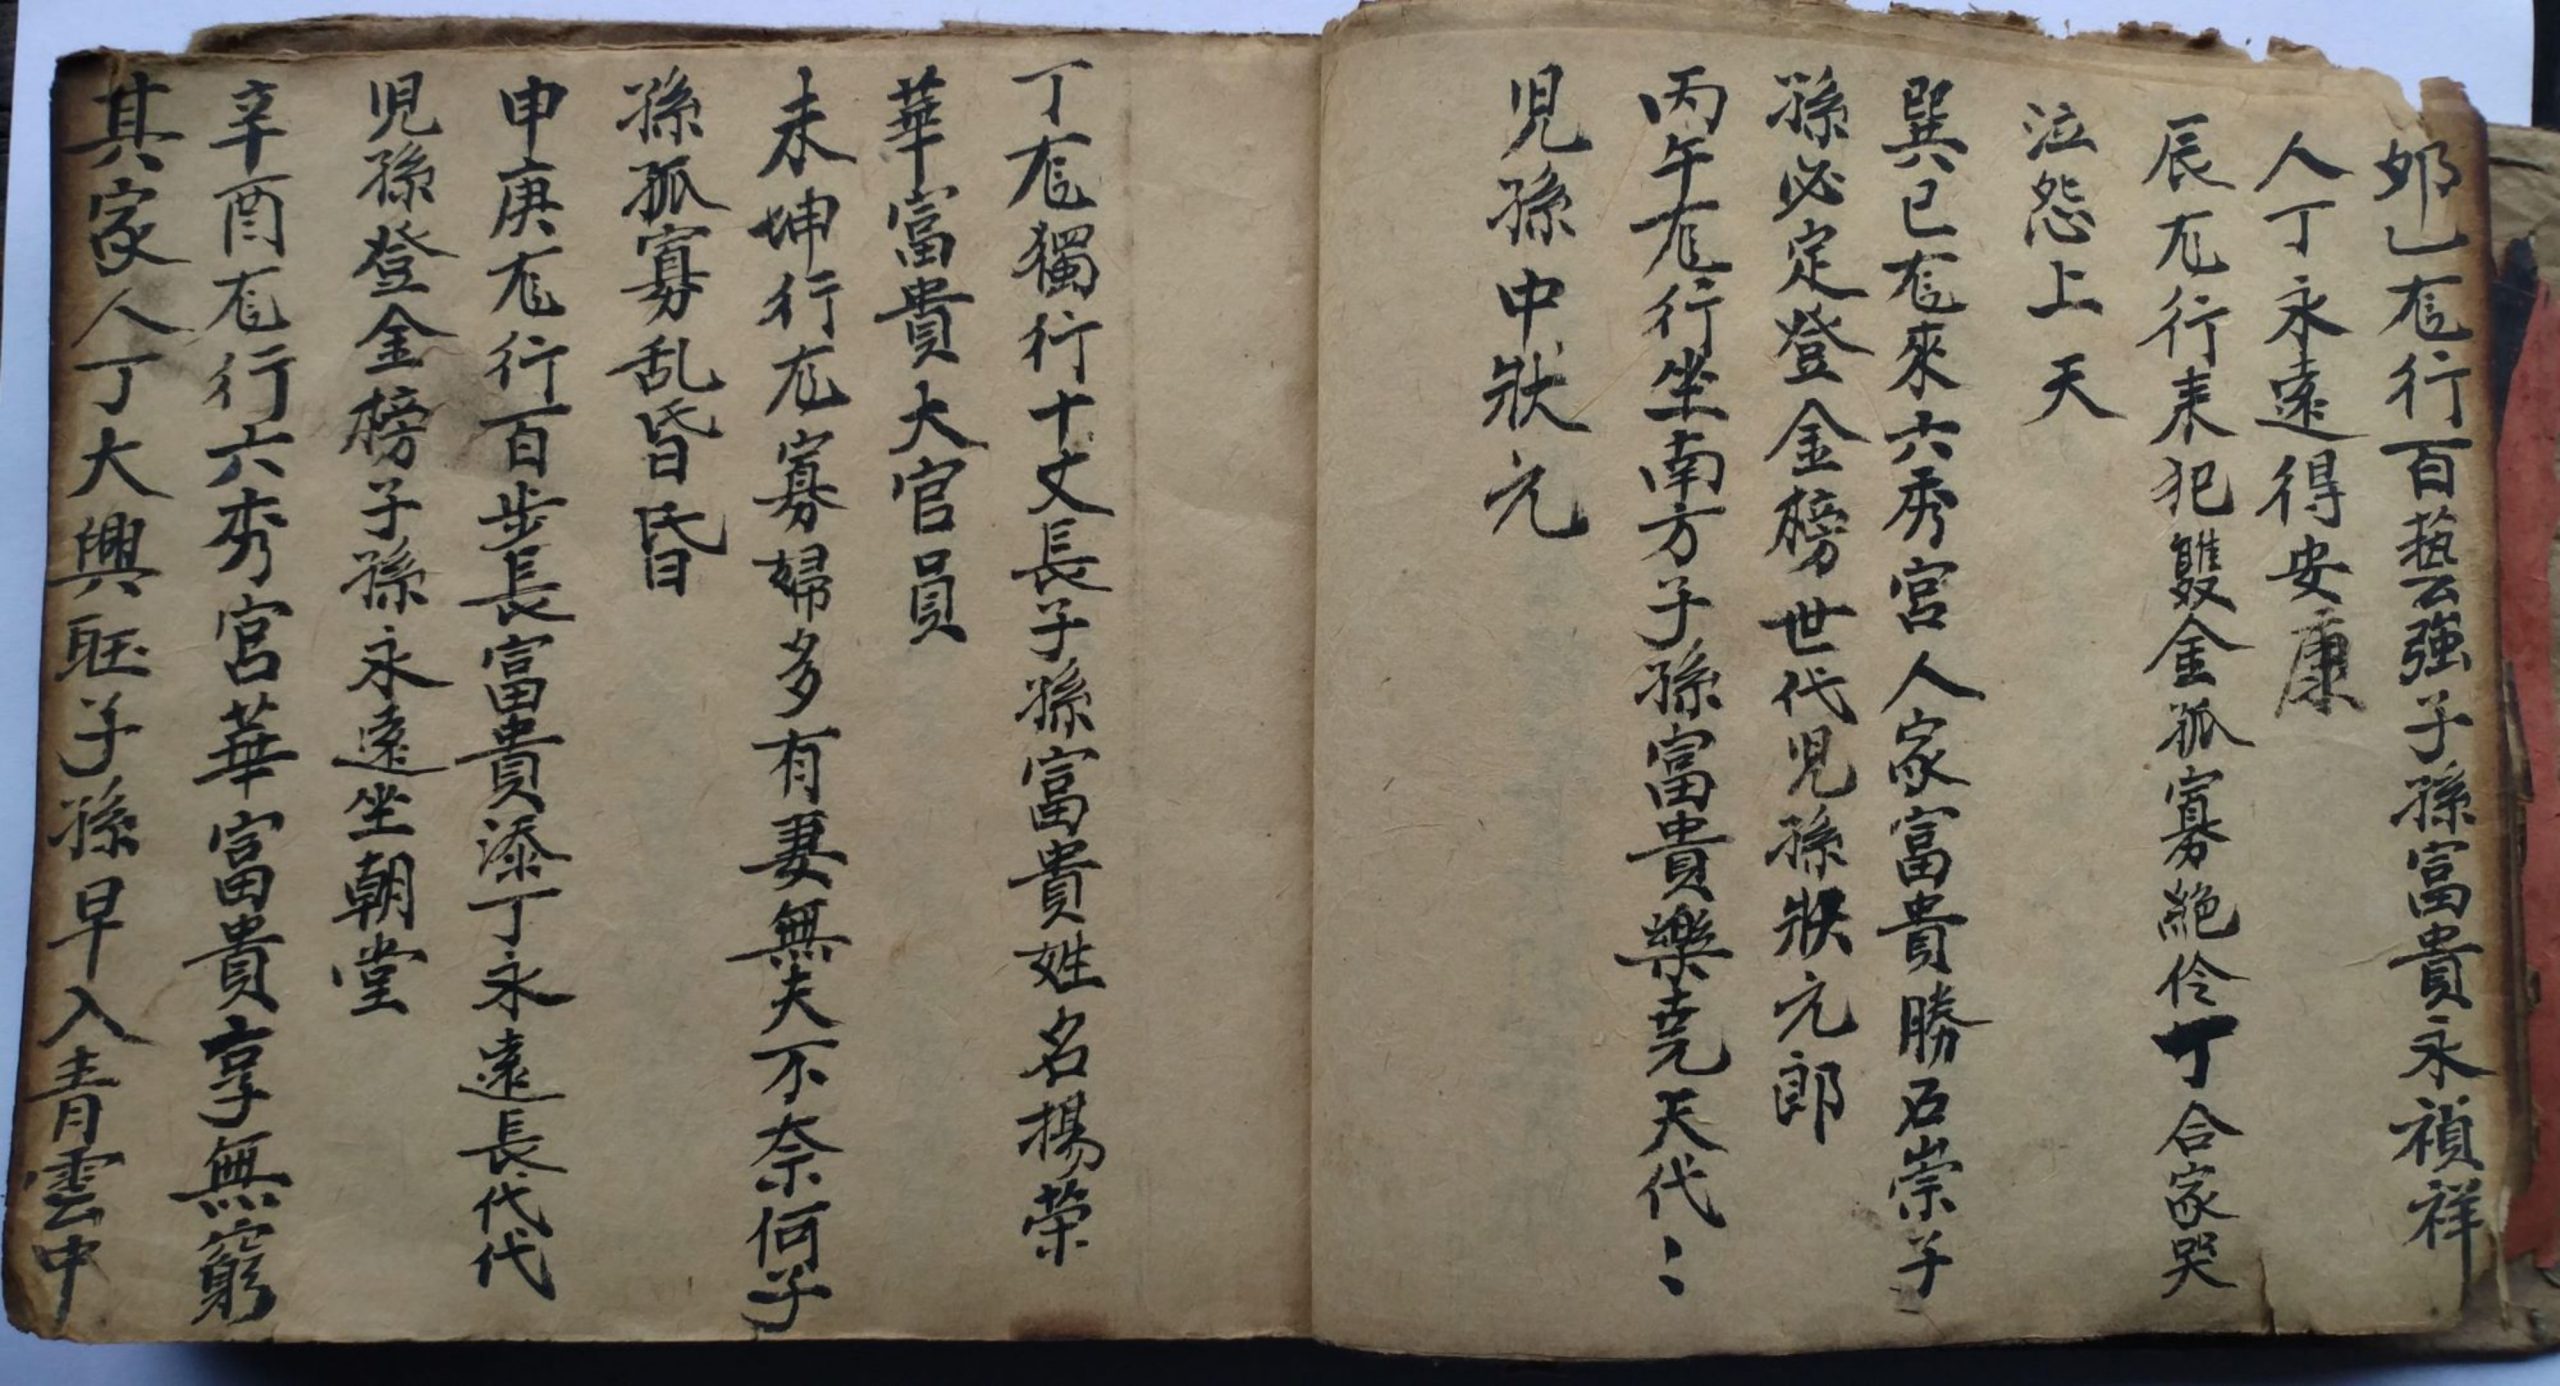 夘乙龙行百藝強子孫富貴永禎祥
人丁永遠得安康
辰龙行来犯雙金孤寡絶伶丁合家哭
泣怨上天
巽巳龙來六秀宮人家富貴勝石崇子
孫必定登金榜世代児孫狀元郎
丙午龙行坐南方子孫富貴樂尭天代〻
児孫中狀元
丁龙獨行十丈長子孫富貴姓名揚荣
華富貴大官員
未坤行龙寡婦多有妻無夫不奈何子
孫孤寡乱昏昏
申庚龙行百步長富貴添丁永遠長代代
児孫登金榜子孫永遠坐朝堂
辛酉龙行六秀宮華富貴享無窮
其家人丁大興旺子孫早入青雲中